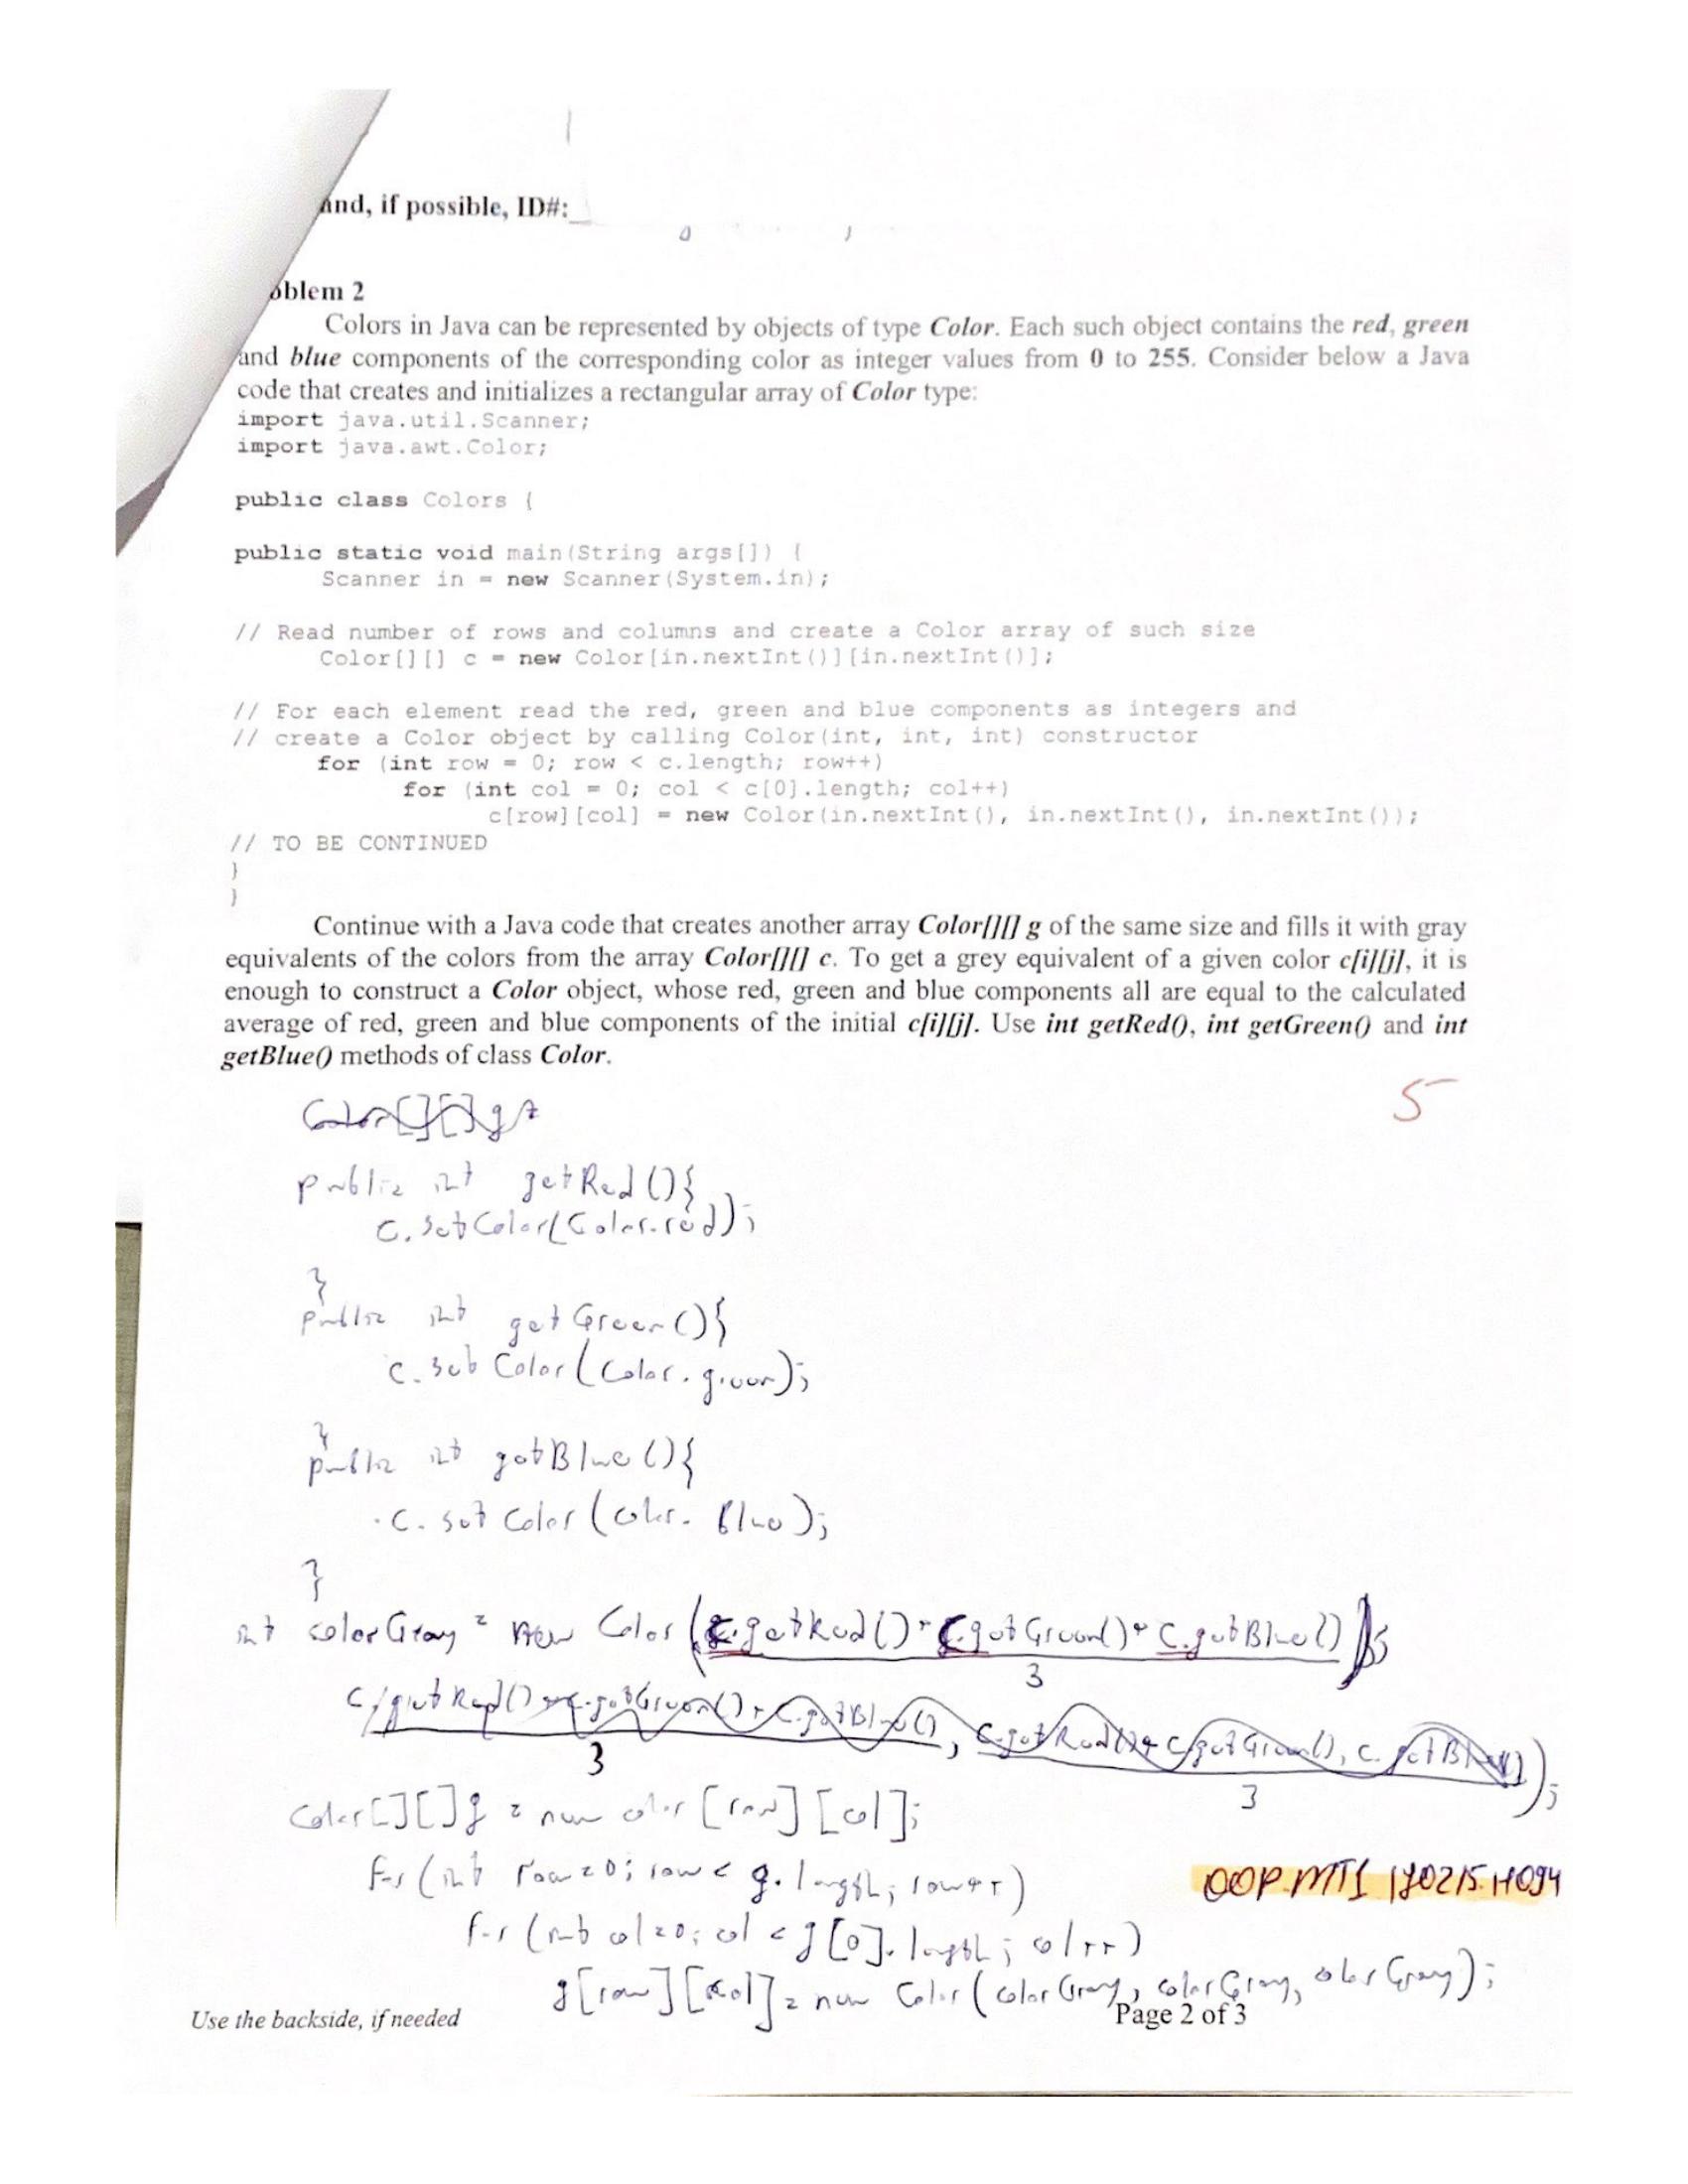 and, if possible, ID#:
oblem 2
Colors in Java can be represented by objects of type Color. Each such object contains the red, green
and blue components of the corresponding color as integer values from 0 to 255. Consider below a Java
code that creates and initializes a rectangular array of Color type:
import java.util.Scanner;
import java.awt.Color;
public class Colors {
public static void main(String args[]) {
Scanner in = new Scanner(System.in);
// Read number of rows and columns and create a Color array of such size
Color[][] c = new Color[in.nextInt()][in.nextInt()];
// For each element read the red, green and blue components as integers and
// create a Color object by calling Color(int, int, int) constructor
for (int row = 0; row < c.length; row++)
for (int col = 0; col < c[0].length; col++)
c[row][col] = new Color(in.nextInt(), in.nextInt(), in.nextInt());
// TO BE CONTINUED
}
}
Continue with a Java code that creates another array Color[][] g of the same size and fills it with gray
equivalents of the colors from the array Color[][] c. To get a grey equivalent of a given color c[i][j], it is
enough to construct a Color object, whose red, green and blue components all are equal to the calculated
average of red, green and blue components of the initial c[i][j]. Use int getRed(), int getGreen() and int
getBlue() methods of class Color.
5
Color[][] g =
public int getRed(){
c.setColor(Color.red);
}
public int getGreen(){
c.setColor(Color.green);
}
public int getBlue(){
c.setColor(Color.Blue);
}
int colorGray = new Color(c.getRed()+c.getGreen()+c.getBlue());
3
c.getRed()+c.getGreen()+c.getBlue(), c.getRed()+c.getGreen(), c.getBlue());
3 3
Color[][] g = new color[row][col];
for (int row=0; row < g.length; row++)
OOP.MT1 170215.H094
for (int col=0; col < g[0].length; col++)
g[row][col] = new Color(colorGray, colorGray, colorGray);
Use the backside, if needed Page 2 of 3